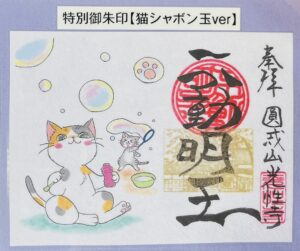 特別御朱印【猫シャボン玉ver】
奉拝 圓戒山光性寺
不動明王